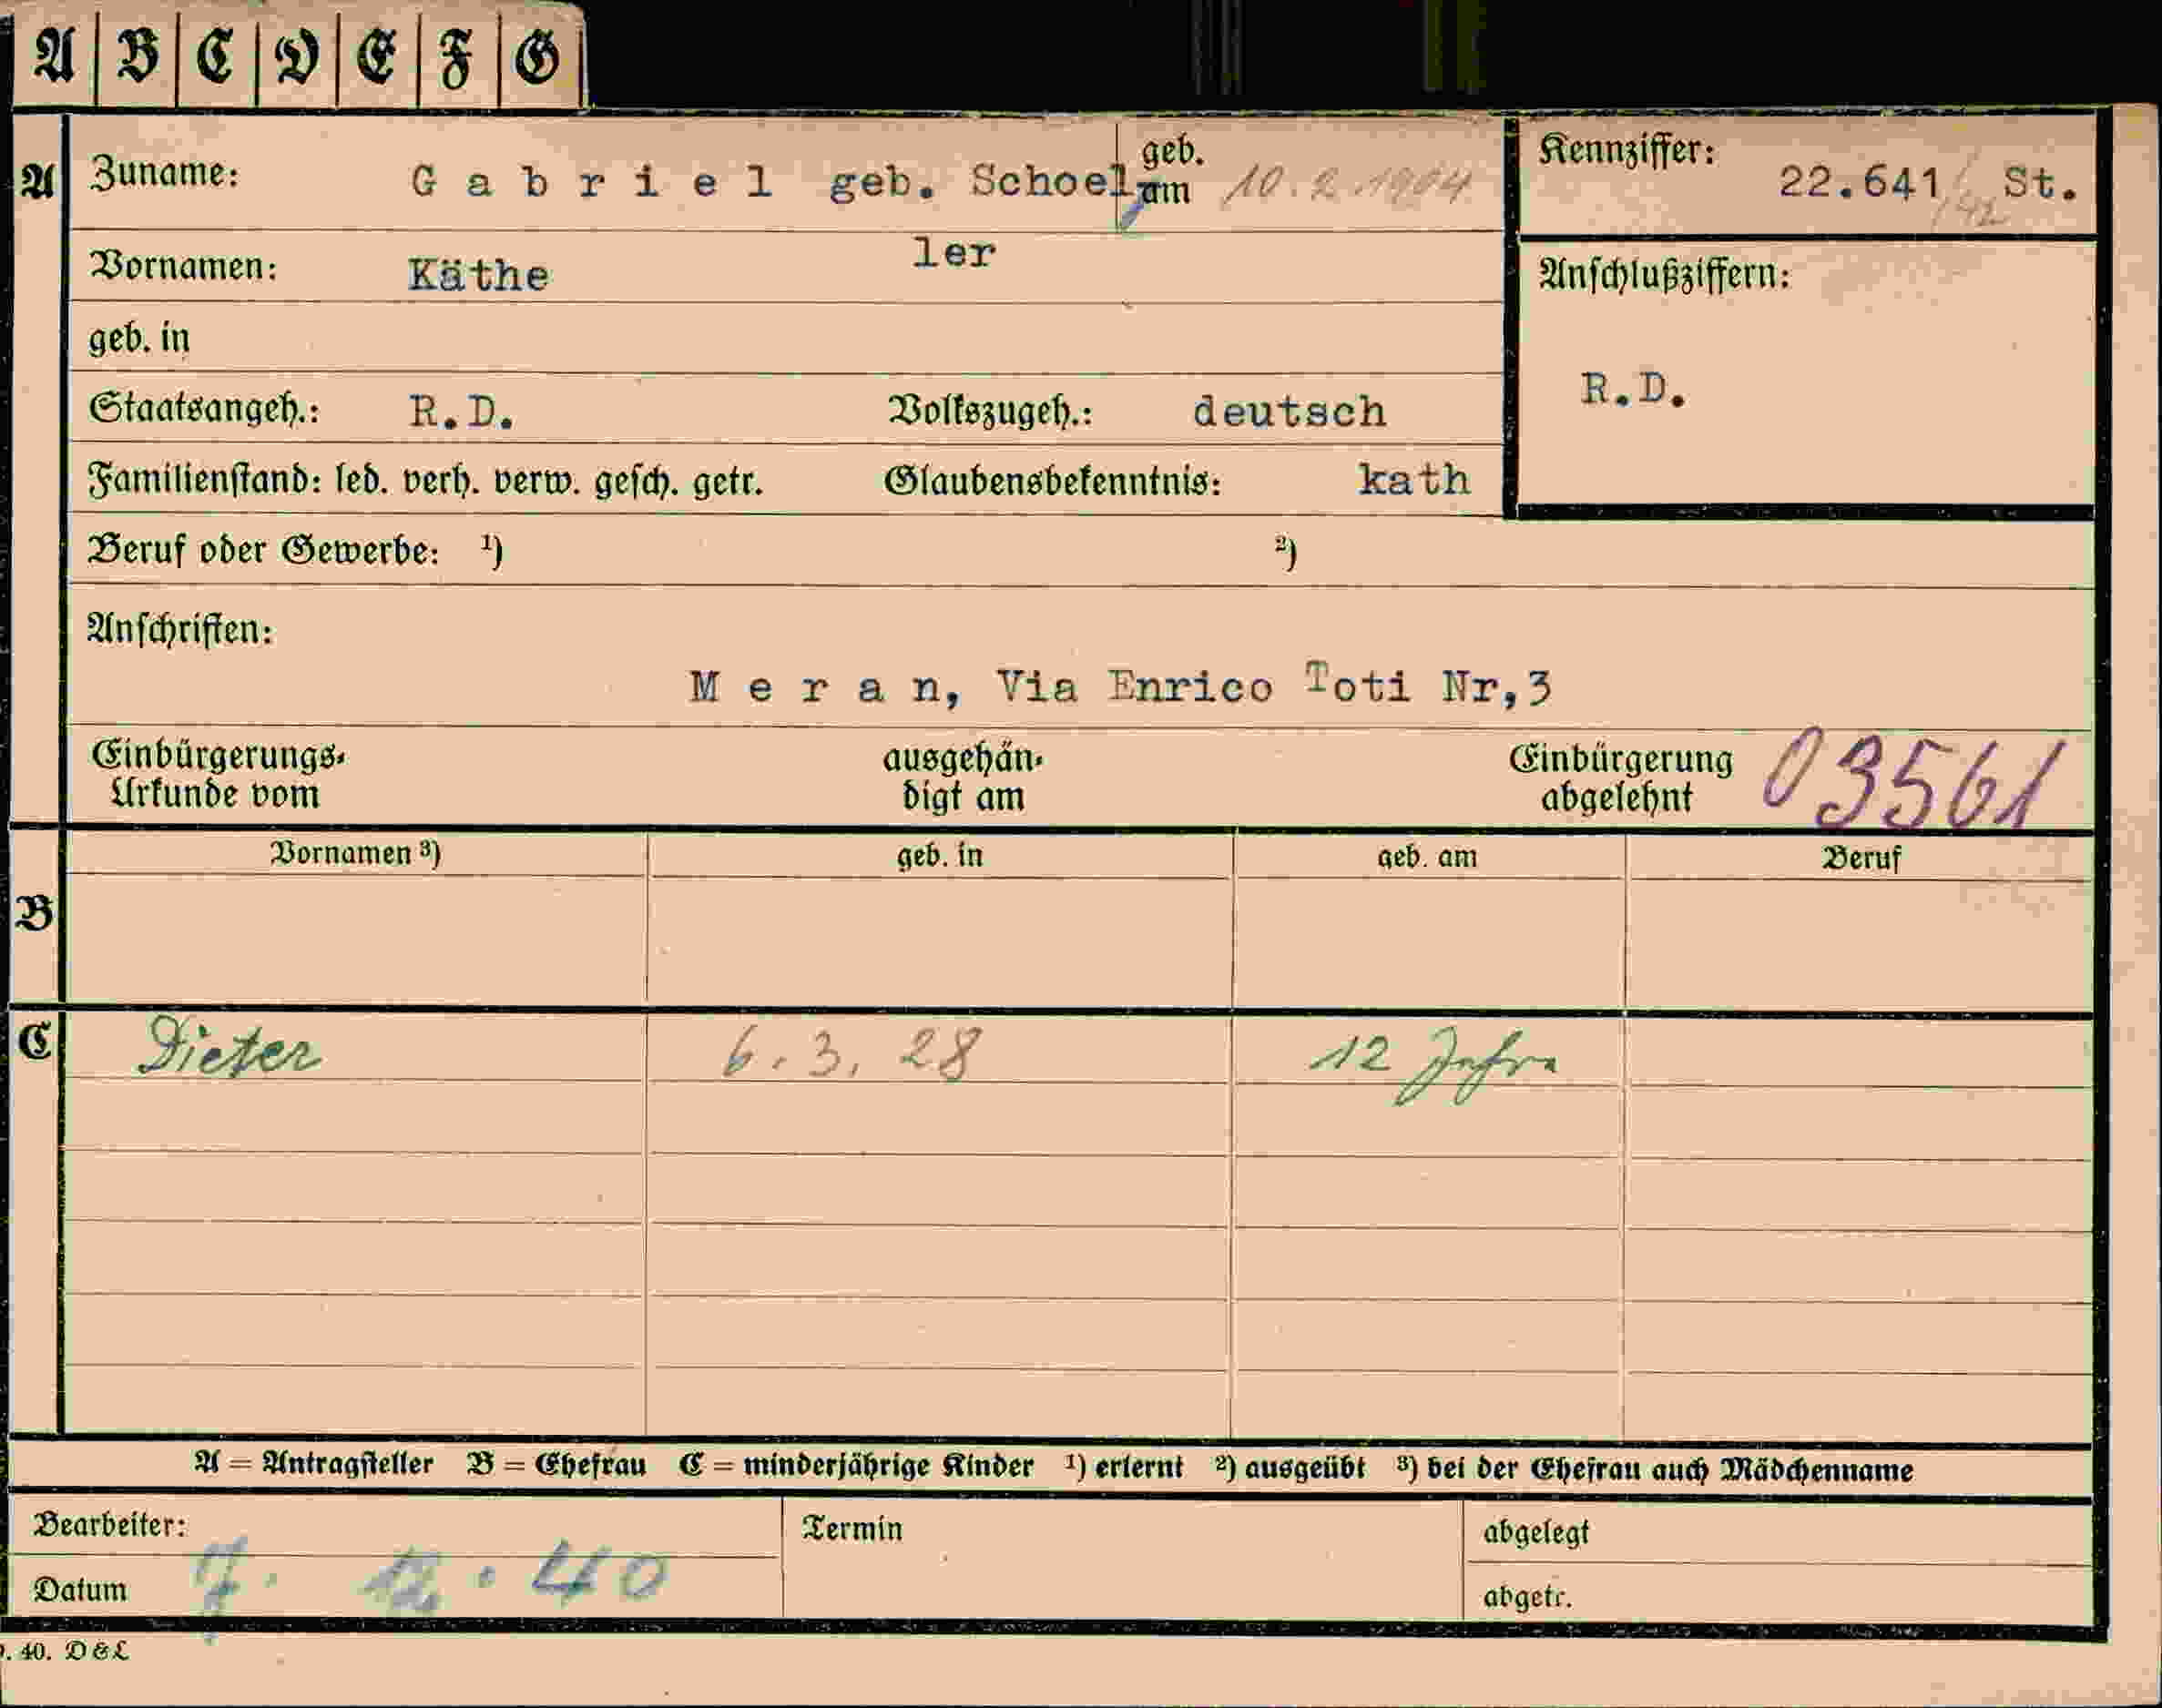 A B C D E F G
A Zuname: G a b r i e l geb. Schoel- geb. am 10.2.1904 Kennziffer: 22.641/42 St.
Vornamen: Käthe ler
Anschlußziffern:
geb. in
R.D.
Staatsangeh.: R.D. Volkszugeh.: deutsch
Familienstand: led. verh. verw. gesch. getr. Glaubensbekenntnis: kath
Beruf oder Gewerbe: 1) 2)
Anschriften:
M e r a n, Via Enrico Toti Nr,3
Einbürgerungs- ausgehän- Einbürgerung 03561
Urkunde vom digt am abgelehnt
Vornamen 3) geb. in geb. am Beruf
B
C Dieter 6.3.28 12 Jahre
A = Antragsteller B = Ehefrau C = minderjährige Kinder 1) erlernt 2) ausgeübt 3) bei der Ehefrau auch Mädchenname
Bearbeiter: Termin abgelegt
Datum 7. 12. 40 abgetr.
. 40. D & L